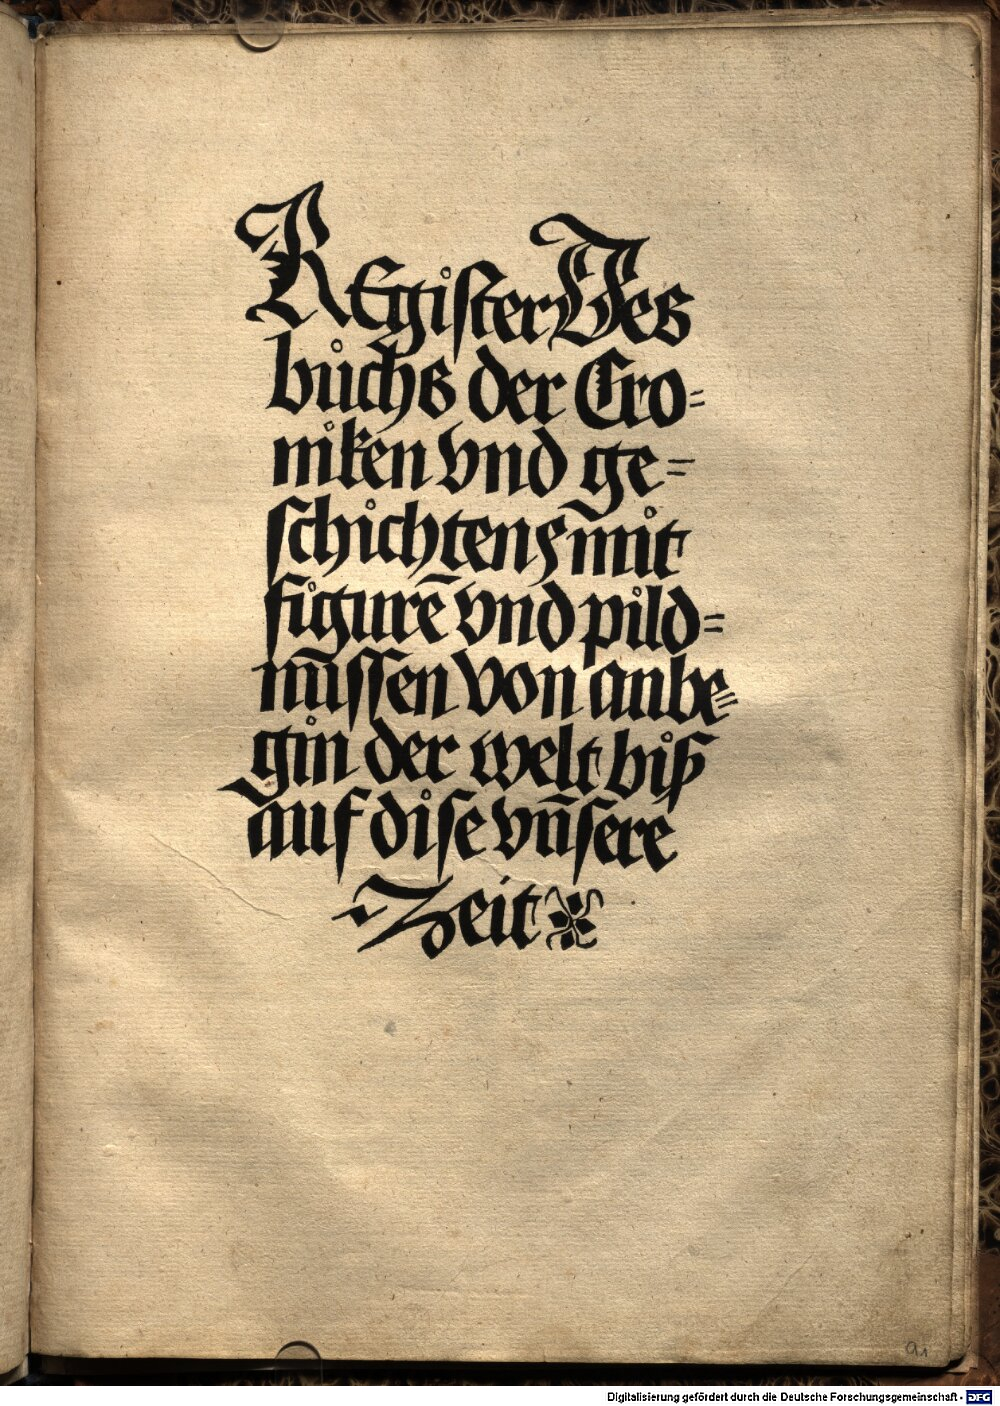 REgister Des
bůchs der Cro=
niken vnd ge=
schichten mit
figurē vnd pild=
nussen von anbe=
gin der welt biß
auf dise vn̄sere
Zeit
a1
Digitalisierung gefördert durch die Deutsche Forschungsgemeinschaft - DFG